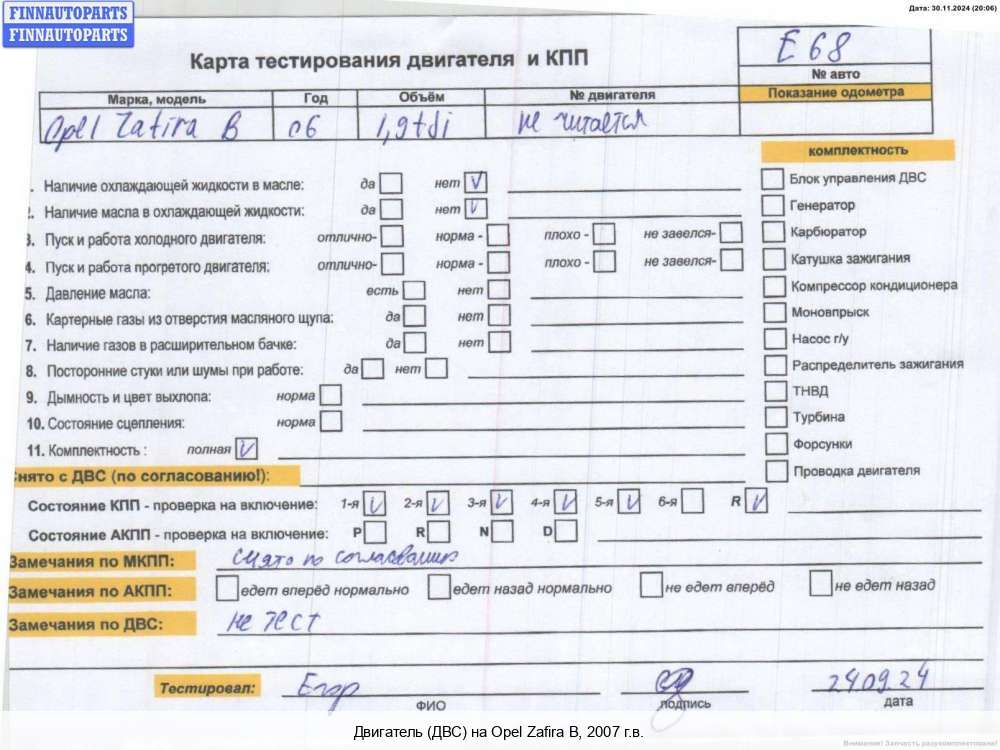 FINNAUTOPARTS
FINNAUTOPARTS
Дата: 30.11.2024 (20:06)
Карта тестирования двигателя и КПП
E 68
№ авто
Показание одометра
Марка, модель Год Объём № двигателя
Opel Zafira B 06 1,9tdi не читается
комплектность
1. Наличие охлаждающей жидкости в масле: да нет V
2. Наличие масла в охлаждающей жидкости: да нет V
3. Пуск и работа холодного двигателя: отлично- норма - плохо - не завелся-
4. Пуск и работа прогретого двигателя; отлично- норма - плохо - не завелся-
5. Давление масла: есть нет
6. Картерные газы из отверстия масляного щупа: да нет
7. Наличие газов в расширительном бачке: да нет
8. Посторонние стуки или шумы при работе: да нет
9. Дымность и цвет выхлопа: норма
10. Состояние сцепления: норма
11. Комплектность : полная V
Блок управления ДВС
Генератор
Карбюратор
Катушка зажигания
Компрессор кондиционера
Моновпрыск
Насос г/у
Распределитель зажигания
ТНВД
Турбина
Форсунки
Проводка двигателя
Снято с ДВС (по согласованию!):
Состояние КПП - проверка на включение: 1-я V 2-я V 3-я V 4-я V 5-я V 6-я R V
Состояние АКПП - проверка на включение: P R N D
Замечания по МКПП: снято по согласованию
Замечания по АКПП: едет вперёд нормально едет назад нормально не едет вперёд не едет назад
Замечания по ДВС: не тест
Тестировал: Егор 24.09.24
ФИО подпись дата
Двигатель (ДВС) на Opel Zafira B, 2007 г.в.
Внимание! Запчасть разукомплектована!